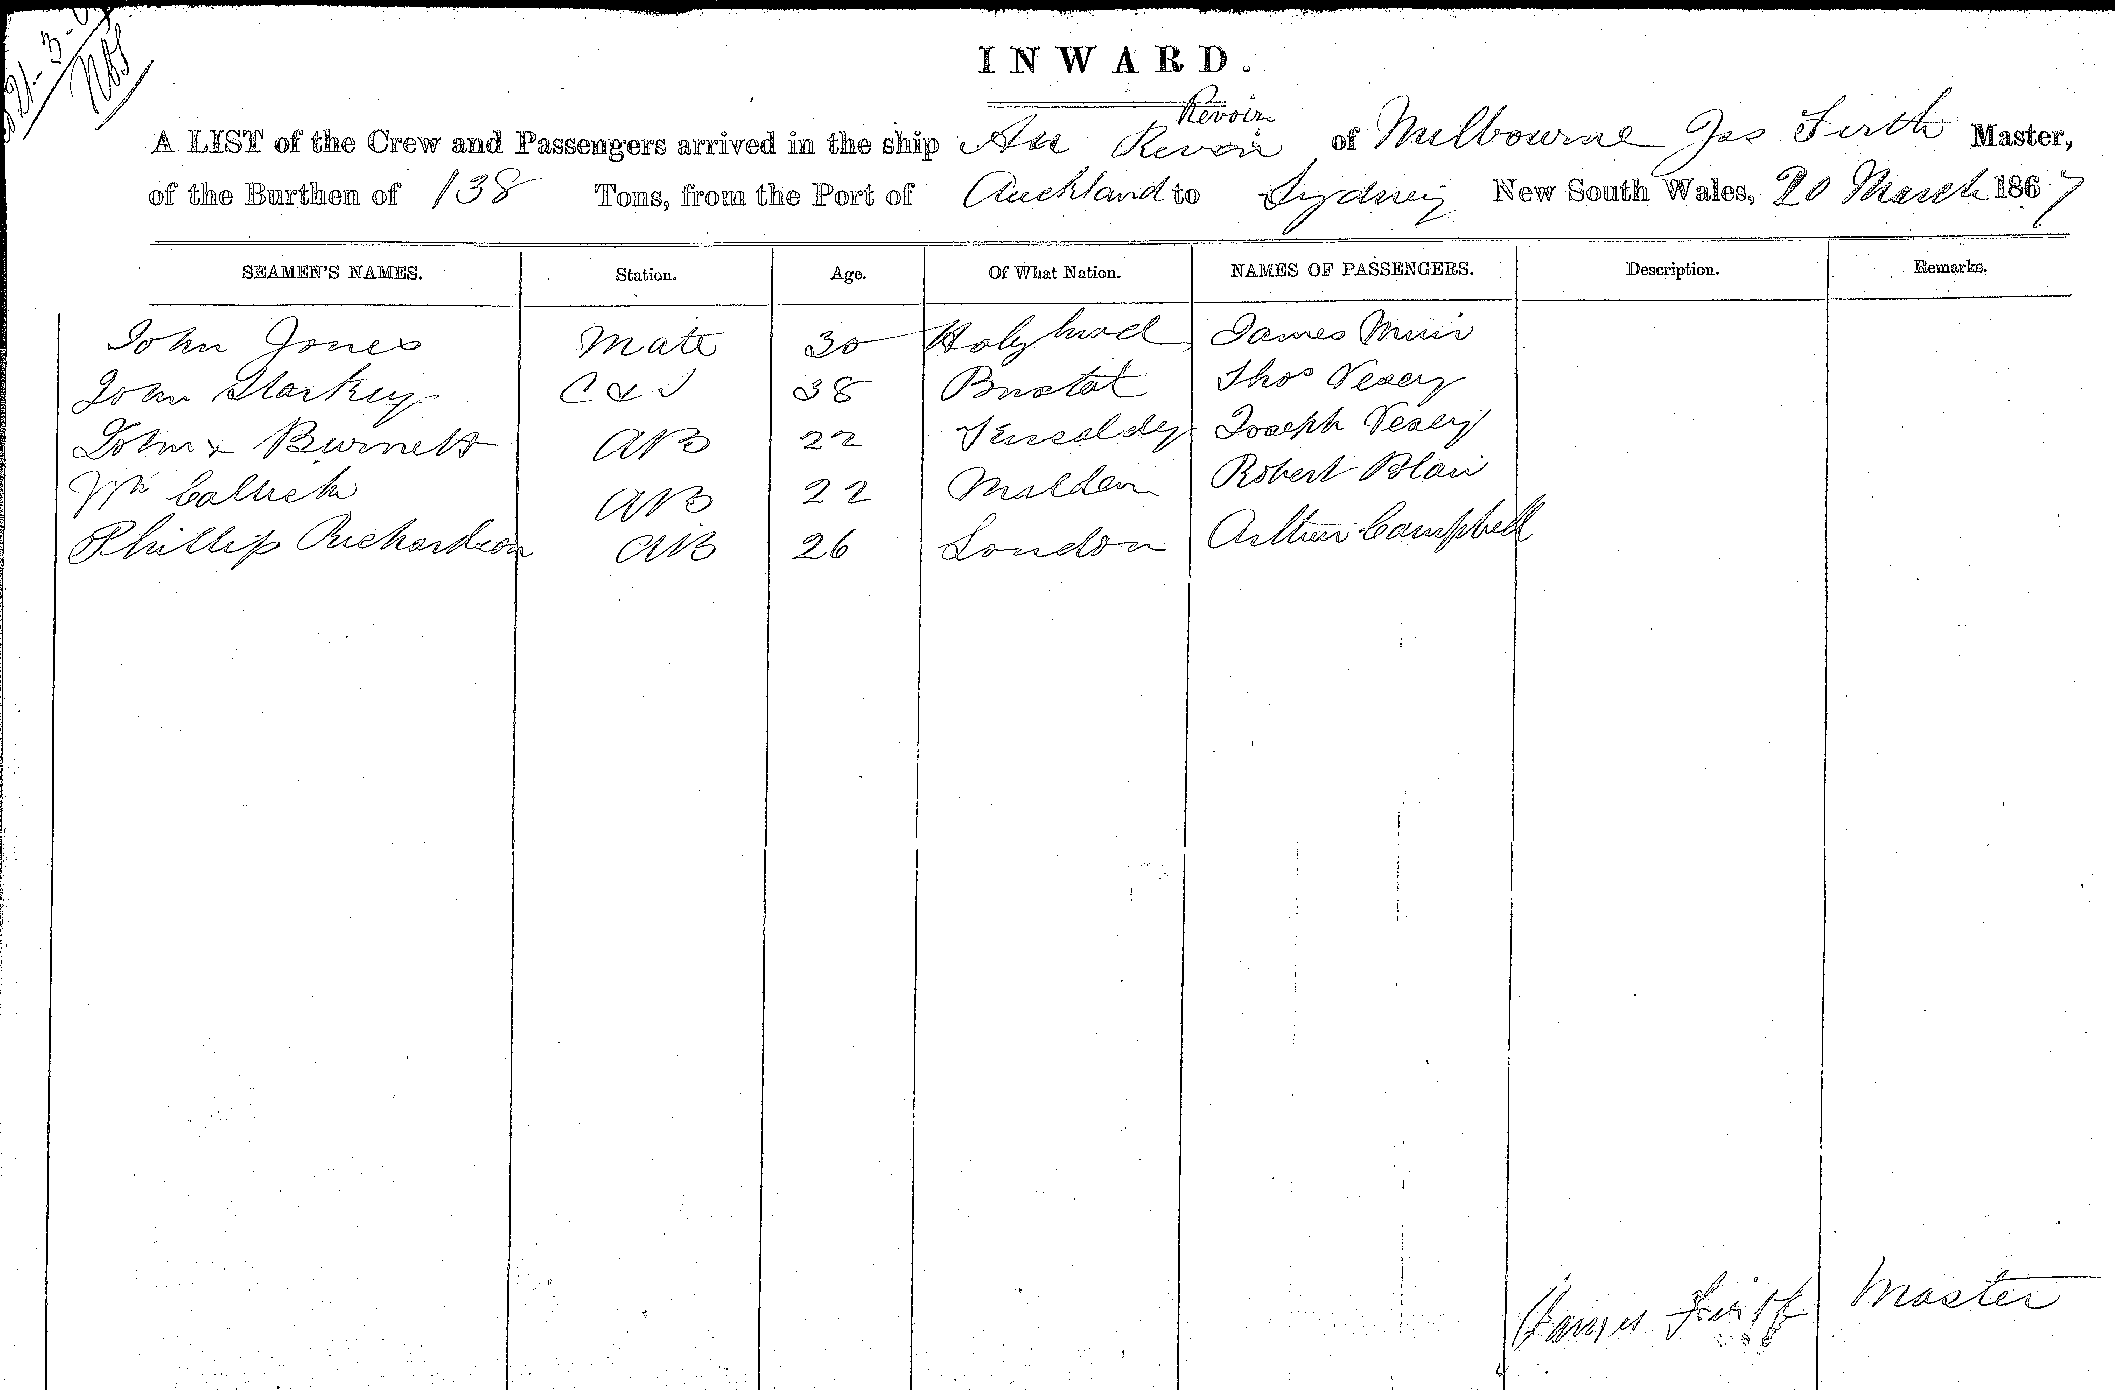 21-3-
INWARD.
Revoir
A LIST of the Crew and Passengers arrived in the ship Au Revoir of Melbourne Jas Firth Master,
of the Burthen of 138 Tons, from the Port of Auckland to Sydney New South Wales, 20 March 1867
SEAMEN'S NAMES. Station. Age. Of What Nation. NAMES OF PASSENGERS. Description. Remarks.
John Jones Mate 30 Holyhead James Muir
John Starkey C & S 38 Bristol Thos Vesey
John Burnett AB 22 Joseph Vesey
Wm AB 22 Maldon Robert Blair
Phillip Richardson AB 26 London Arthur Campbell
James Firth Master